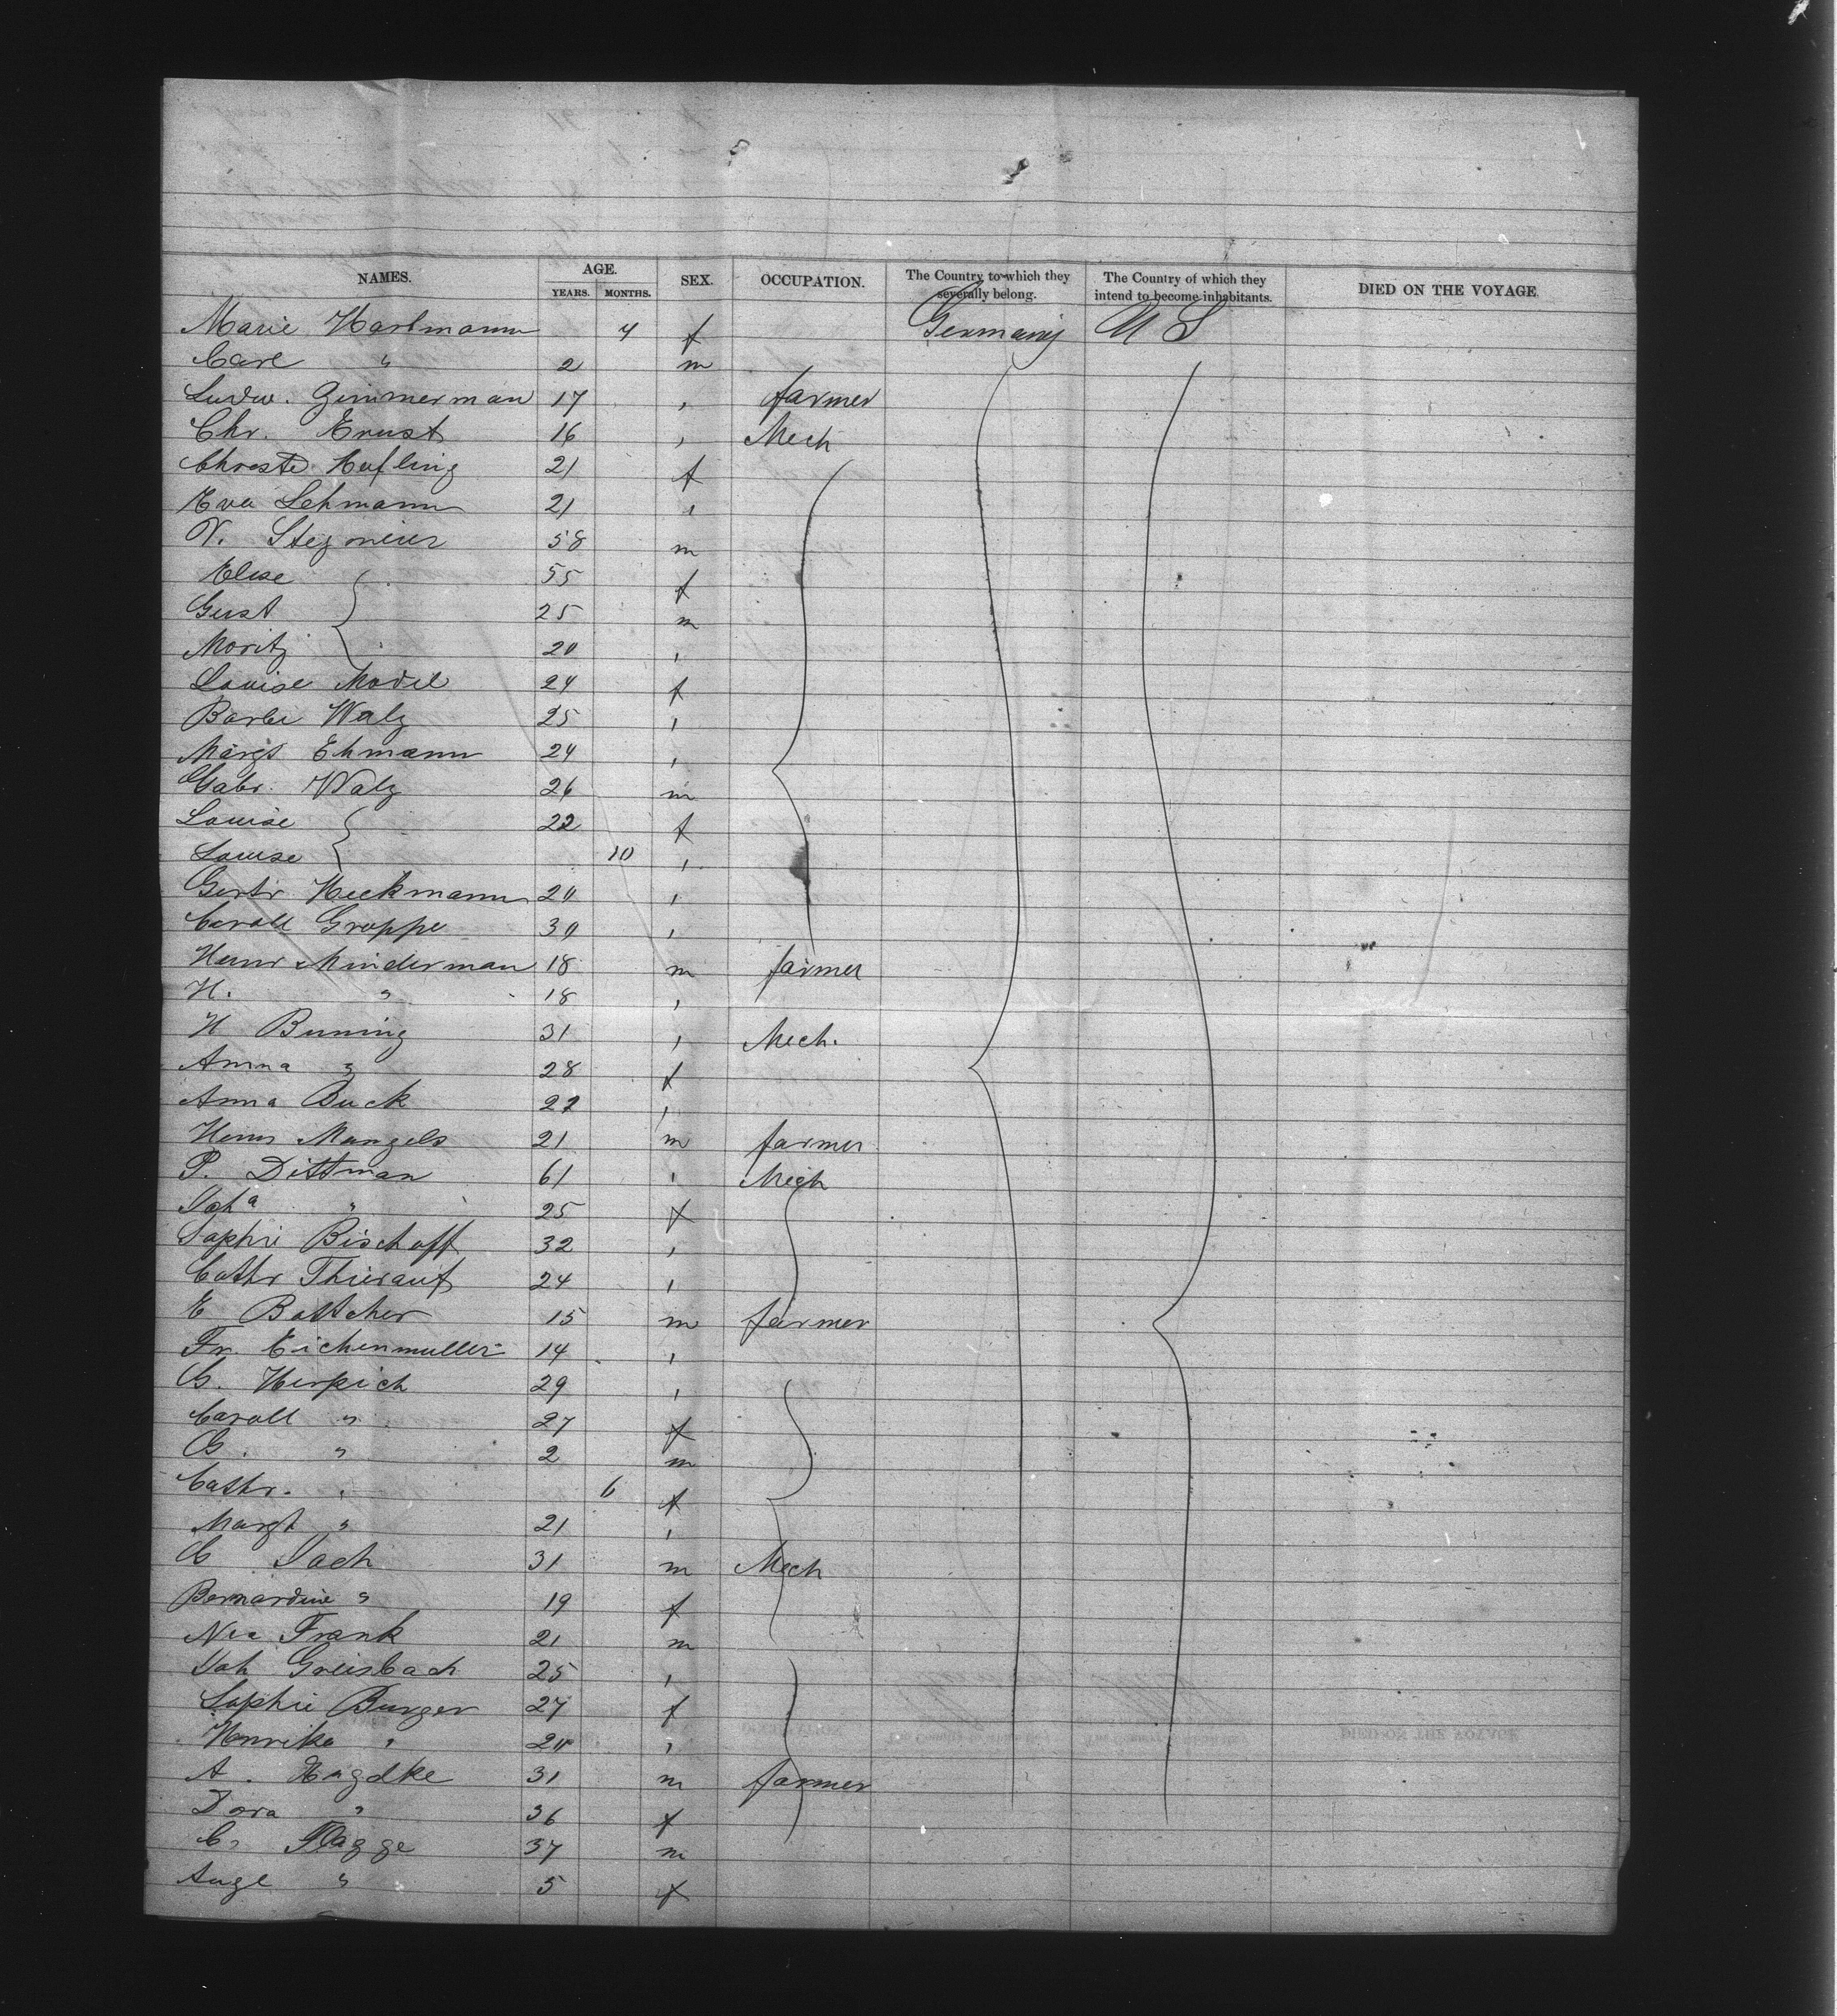 NAMES. AGE. SEX. OCCUPATION. The Country to which they severally belong. The Country of which they intend to become inhabitants. DIED ON THE VOYAGE.
YEARS. MONTHS.
Marie Hartmann 4 f Germany U S
Carl " 2 m
Ludw. Zimmerman 17 , farmer
Chr. Ernst 16 , Mech
Christe Hufling 21 f
Eva Lehmann 21 ,
V. Stegmeier 58 m
Elise 55 f
Gust 25 m
Moritz 20 ,
Louise Model 24 f
Barbe Walz 25 ,
Margt Ehmann 24 ,
Gabr. Walz 26 m
Louise 22 f
Louise 10 ,
Gertr Heckmann 20 ,
Caroll Groppe 30 ,
Henr Minderman 18 m farmer
H. " 18 ,
H Buning 31 , Mech.
Anna " 28 f
Anna Buck 22 ,
Henr Mangels 21 m farmer
P. Dittman 61 , Mech
Joha " 25 f
Sophie Bischoff 32 ,
Cathr Thierauf 24 ,
E Bottcher 15 m farmer
Fr. Eichenmuller 14 ,
G. Herpich 29 ,
Caroll " 27 f
G. " 2 m
Cathr. " 6 f
Margt " 21 ,
C Joch 31 m Mech
Bernardine " 19 f
Frank 21 m
Joh Greisbach 25 ,
Sophie Burger 27 f
Henrike " 20 ,
A. Hagdke 31 m farmer
Dora " 36 f
C. Flagge 37 m
Auge " 5 f